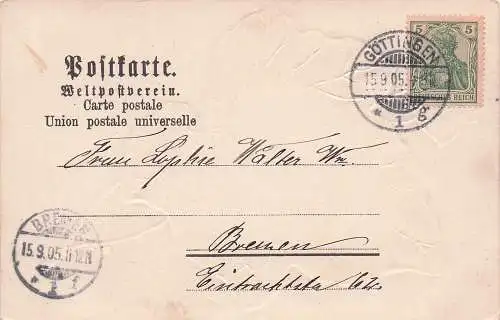 Postkarte.
Weltpostverein.
Carte postale
Union postale universelle
5 5
REICH
GÖTTINGEN
15.9.05.
* 1
Frau Sophie Walter Wwe.
Bremen
BREMEN
15.9.05.
* 1 f